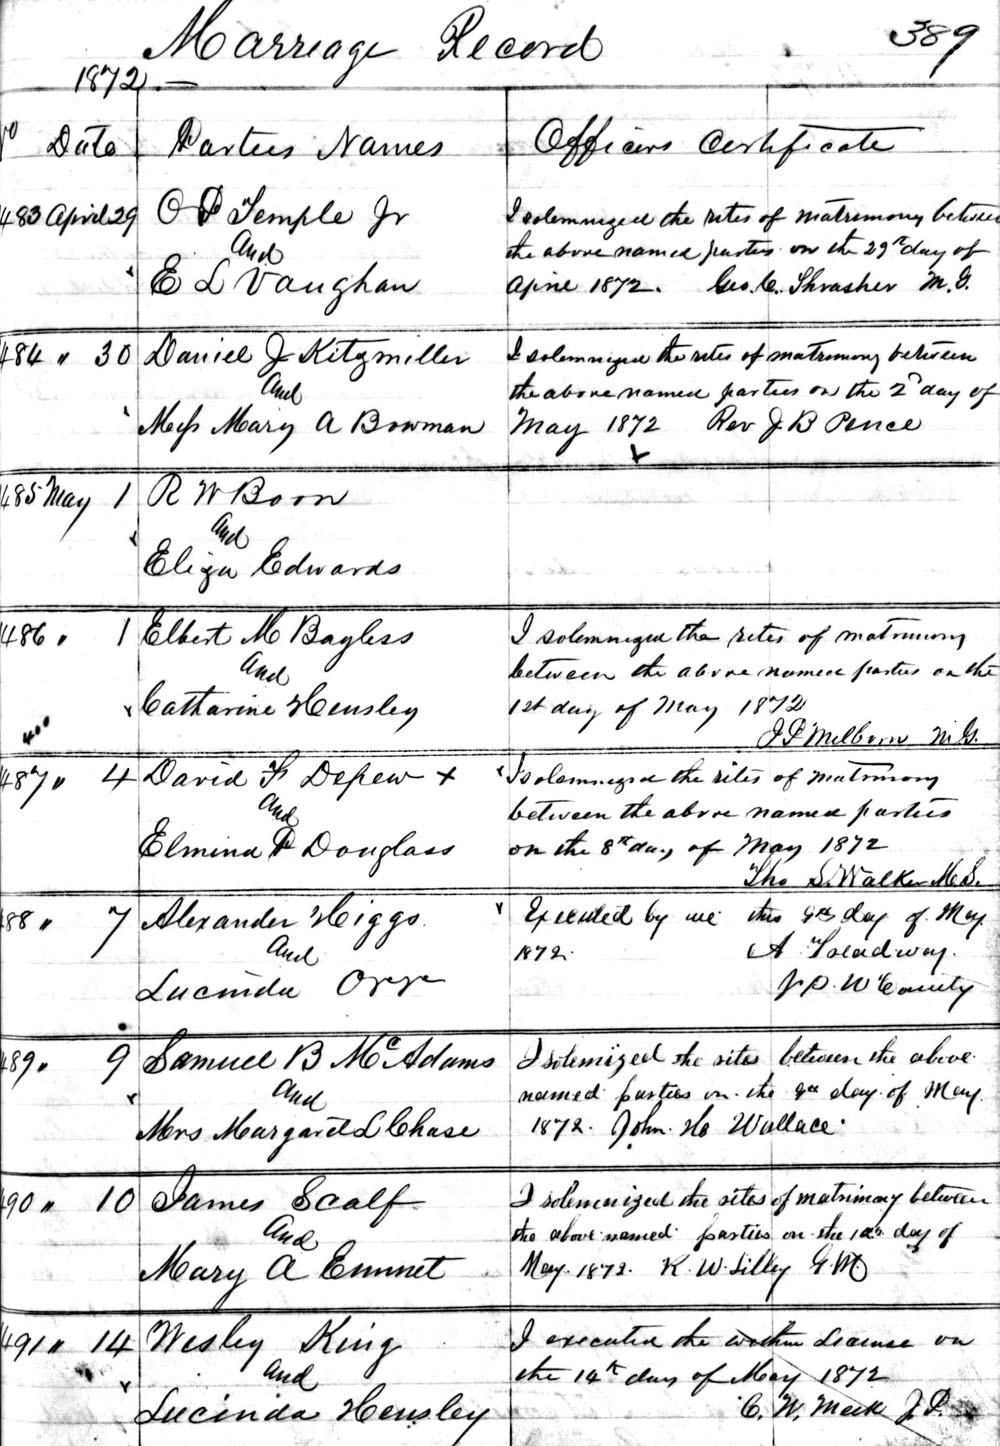 Marriage Record 389
1872 —
No Date Parties Names Officers Certificate
483 April 29 O P Temple Jr
And
E L Vaughan
I solemnized the rites of matrimony between
the above named parties on the 29th day of
April 1872. Geo. C. Thrasher M.G.
484 " 30 Daniel J Kitzmiller
And
Miss Mary A Bowman
I solemnized the rites of matrimony between
the above named parties on the 2d day of
May 1872 Rev J B Pence
485 May 1 R W Boon
And
Eliza Edwards
486 " 1 Elbert M Bayless
And
Catharine Hensley
I solemnized the rites of matrimony
between the above named parties on the
1st day of May 1872
J P Milborn M.G.
487 " 4 David F Depew +
And
Elmina P Douglass
I solemnized the rites of matrimony
between the above named parties
on the 8th day of May 1872
Tho S. Walker M.G.
488 " 7 Alexander Higgs
And
Lucinda Orr
Executed by me this 9th day of May
1872. A Treadway.
J.P. W County
489 " 9 Samuel B McAdams
And
Mrs Margaret L Chase
I solemized the rites between the above
named parties on the 9th day of May
1872. John. H Wallace.
490 " 10 James Scalf
And
Mary A Emmet
I solemnized the rites of matrimony between
the above named parties on the 10th day of
May. 1872. K. W. Lilly G M
491 " 14 Wesley King
And
Lucinda Hensley
I executed the within License on
the 14th day of May 1872
C. W. Meek J.P.